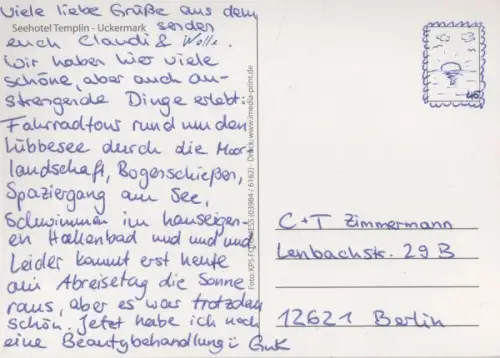 Viele liebe Grüße aus dem
Seehotel Templin - Uckermark
senden
euch Claudi & Wolle.
Wir haben hier viele
schöne, aber auch an-
strengende Dinge erlebt:
Fahrradtour rund um den
Lübbesee durch die Moor
landschaft, Bogenschießen,
Spaziergang am See,
Schwimmen im hauseigen-
en Hallenbad und und und
Leider kommt erst heute
am Abreisetag die Sonne
raus, aber es war trotzdem
schön. Jetzt habe ich noch
eine Beautybehandlung
Foto: KPS (03984 / 6162) Druck: www.imedia-print.de
45
C + T Zimmermann
Lenbachstr. 29 B
12621 Berlin